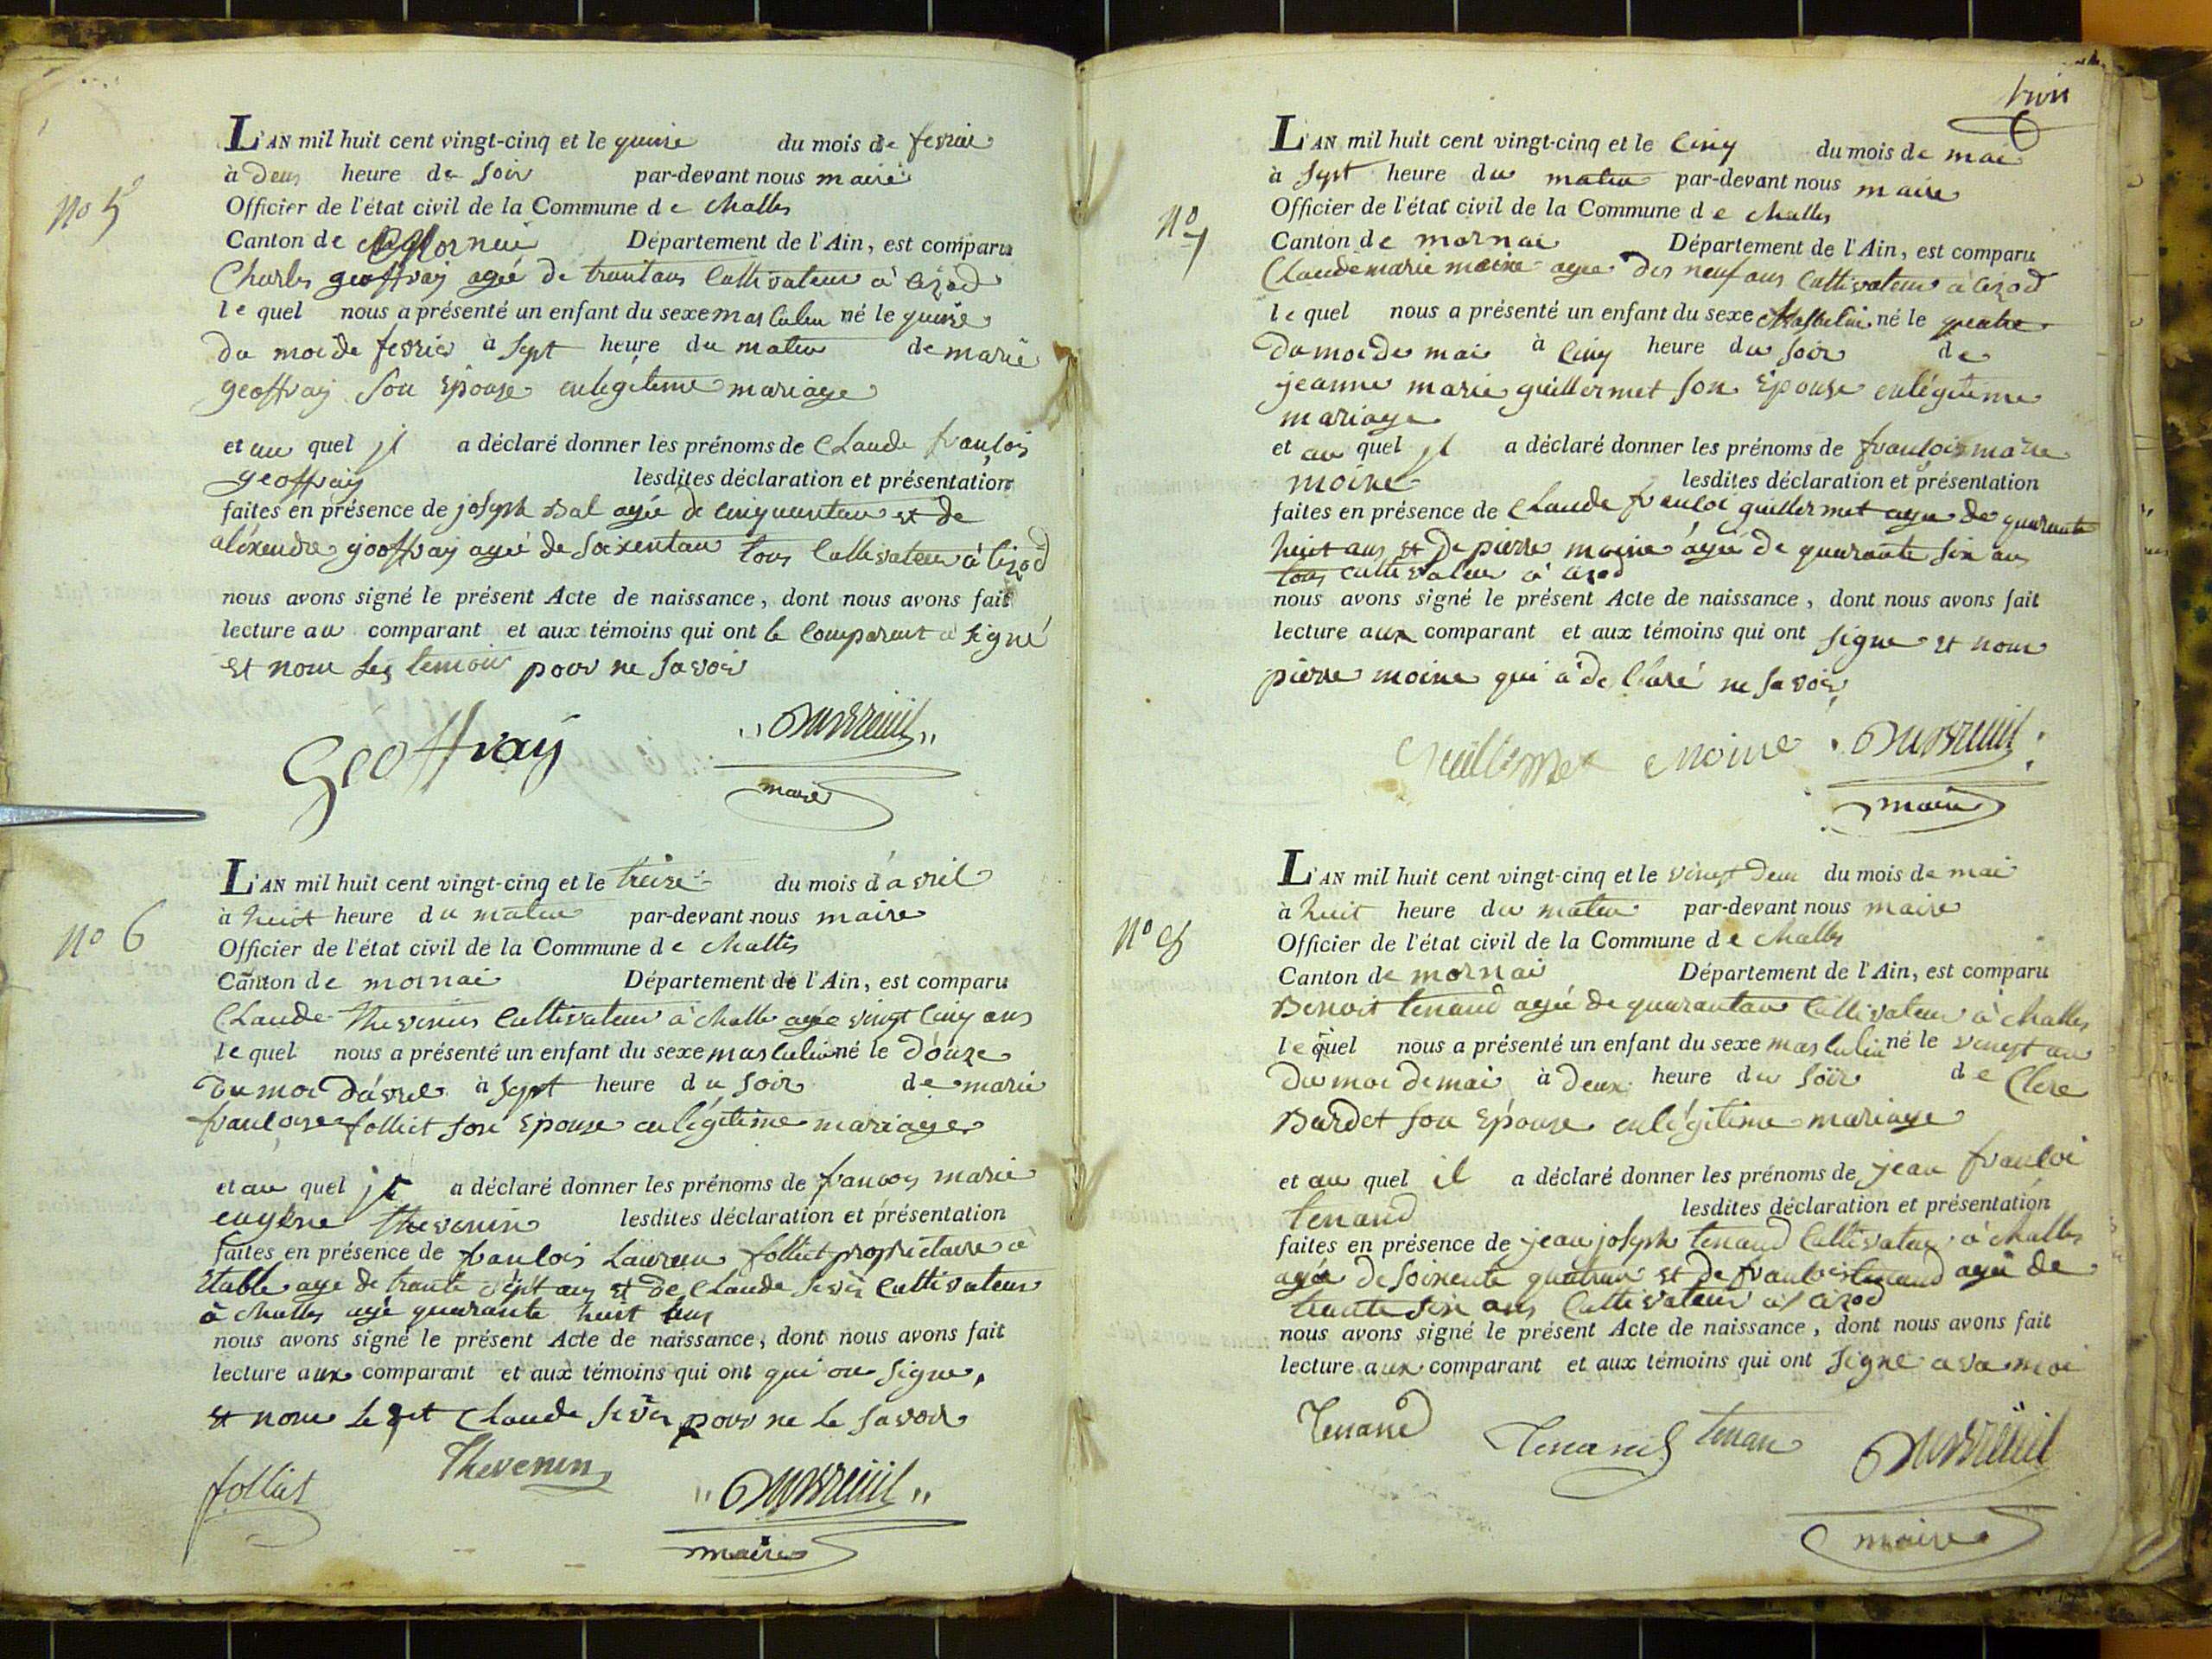 No 5
L'AN mil huit cent vingt-cinq et le quinse du mois de fevrié
à deus heure de soir par-devant nous maire
Officier de l'état civil de la Commune de challes
Canton de Mornai Département de l'Ain, est comparu
Charles geoffray agée de trantans Cultivateur a Cizod
lequel nous a présenté un enfant du sexe masculin né le quinse
du moi de fevrier à sept heure du matin de marie
geoffray son Epouse enlegitime mariage
et au quel il a déclaré donner les prénoms de Claude françois
geoffray lesdites déclaration et présentation
faites en présence de joseph Bal agée de cinquantan et de
aléxendre gooffray ageé de soixentan tous Cultivateur à Cizod
nous avons signé le présent Acte de naissance, dont nous avons fait
lecture au comparant et aux témoins qui ont le comparant a signé
et nom les temoin pour ne savoir
Geoffray Dubreuil
maire
No 6
L'AN mil huit cent vingt-cinq et le treise du mois d'avril
à huit heure du matin par-devant nous maire
Officier de l'état civil de la Commune de challes
Canton de mornai Département de l'Ain, est comparu
Claude thevenin Cultivateur a challe agée vingt Cinq ans
lequel nous a présenté un enfant du sexe masculin né le douze
du moi d'avril à sept heure du soir de marie
françoise folliet son Epouse enlégitime mariage
et au quel il a déclaré donner les prénoms de françois marie
eugène thevenin lesdites déclaration et présentation
faites en présence de francois Lauren folliet proprietaire a
Etable age de trante sept ans et de Claude sevin cultivateur
a challes agé quarante huit ans
nous avons signé le présent Acte de naissance, dont nous avons fait
lecture aux comparant et aux témoins qui ont qui on signe,
et nom le dit Claude sevin pour ne le savoir
folliet Thevenin Dubreuil
maire
trois
No 7
L'AN mil huit cent vingt-cinq et le Cinq du mois de mai
à sept heure du matin par-devant nous maire
Officier de l'état civil de la Commune de challes
Canton de mornai Département de l'Ain, est comparu
Claude marie moine agee dix neuf ans Cultivateur a Cizod
lequel nous a présenté un enfant du sexe Masculin né le quatre
du moi de mai à cinq heure du soir de
jeanne marie guillermet son Epouse enlégitime
mariage
et au quel il a déclaré donner les prénoms de françois marie
moine lesdites déclaration et présentation
faites en présence de Claude francoi guillermet agee de quarante
huit ans et de pierre moine ágeé de quarante six ans
tous cultivateur a Cizod
nous avons signé le présent Acte de naissance, dont nous avons fait
lecture aux comparant et aux témoins qui ont signe et nom
pierre moine qui a déclaré ne savoir,
Guillermet Moine Dubreuil
maire
No 8
L'AN mil huit cent vingt-cinq et le vingt deux du mois de mai
à huit heure du matin par-devant nous maire
Officier de l'état civil de la Commune de challes
Canton de mornai Département de l'Ain, est comparu
Benoit tenand ageé de quarantan Cultivateur a challes
lequel nous a présenté un enfant du sexe masculin né le vingt un
du moi de mai à deux heure du soir de Clere
Burdet son Epouse enlégitime mariage
et au quel il a déclaré donner les prénoms de jean francoi
tenand lesdites déclaration et présentation
faites en présence de jean joseph tenand Cultivateur a challes
agée de soixente quatran et de francois tenand ageé de
trante six ans Cultivateur a Cizod
nous avons signé le présent Acte de naissance, dont nous avons fait
lecture aux comparant et aux témoins qui ont signé ava moi
Tenand Tenand tenan Dubreuil
maire